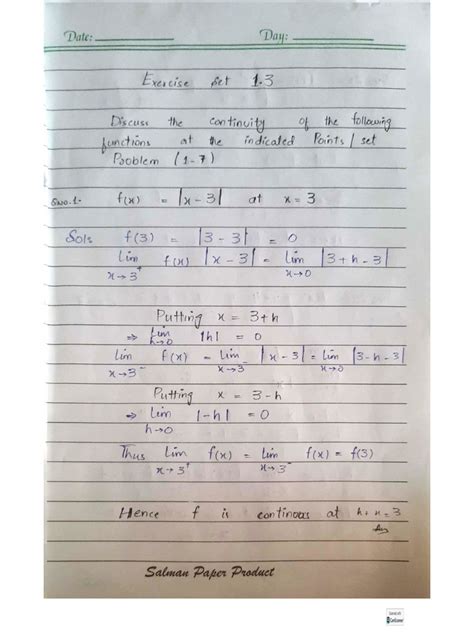 Date: Day:
Exercise set 1.3
Discuss the continuity of the following
functions at the indicated Points / set
Problem (1-7)
QNo.1- f(x) = |x-3| at x = 3
Sol: f(3) = |3-3| = 0
Lim x→3⁺ f(x) |x-3| = Lim x→0 |3+h-3|
Putting x = 3+h
⇒ Lim h→0 |h| = 0
Lim x→3⁻ f(x) = Lim x→3⁻ |x-3| = Lim x→0 |3-h-3|
Putting x = 3-h
⇒ Lim h→0 |-h| = 0
Thus Lim x→3⁺ f(x) = Lim x→3⁻ f(x) = f(3)
Hence f is continous at x = 3
Salman Paper Product
CamScanner